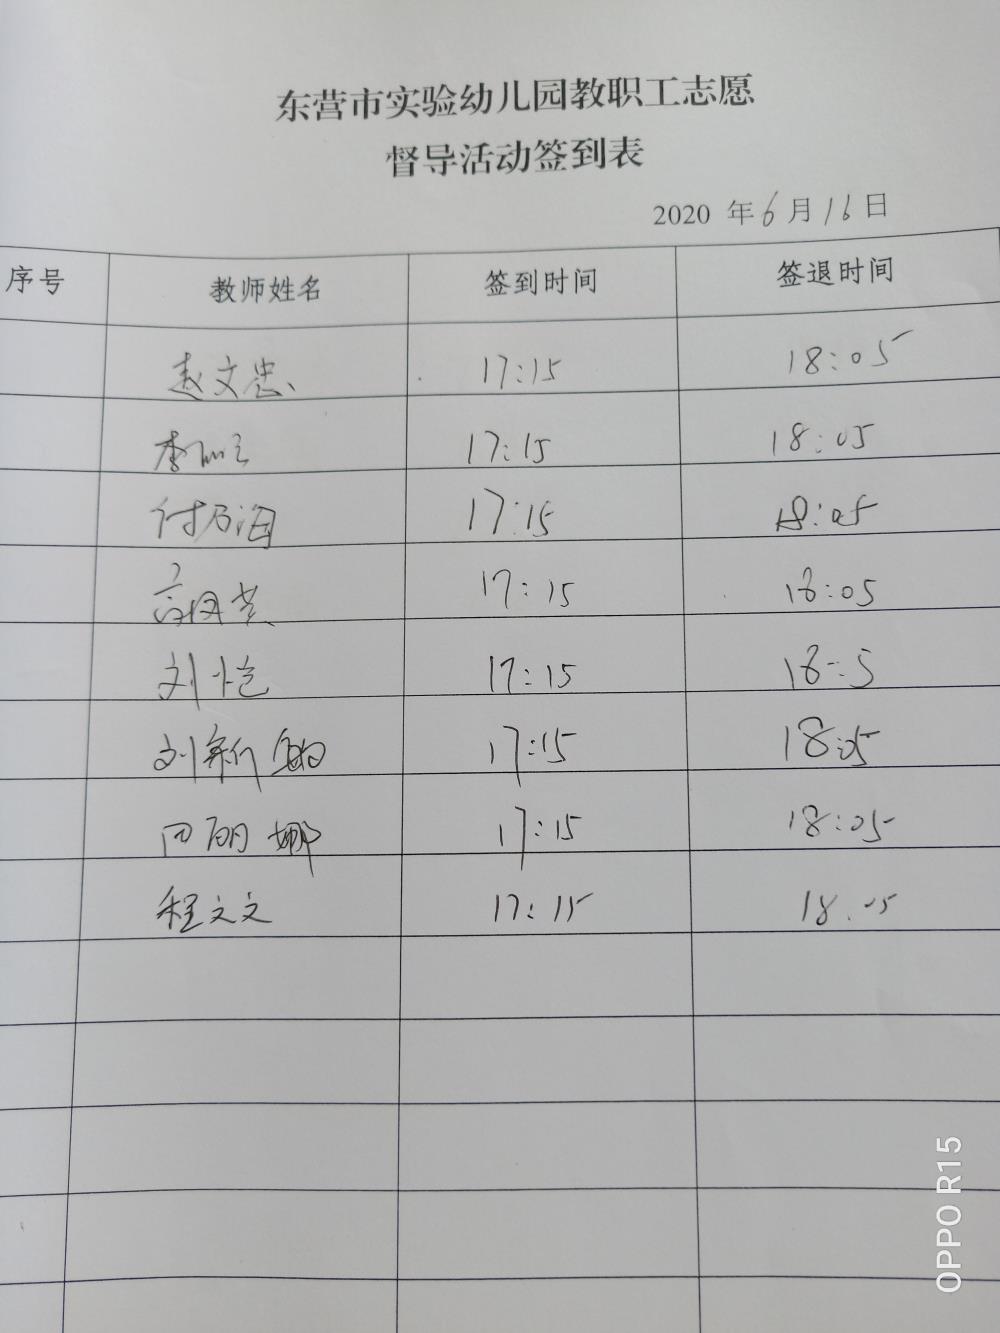 东营市实验幼儿园教职工志愿
督导活动签到表
2020 年 6 月 16 日
序号 教师姓名 签到时间 签退时间
赵文忠 17:15 18:05
李 17:15 18:05
付乃海 17:15 18:05
高凤芝 17:15 18:05
刘恺 17:15 18:5
刘新 17:15 18:05
田丽娜 17:15 18:05
程文文 17:15 18.05
OPPO R15